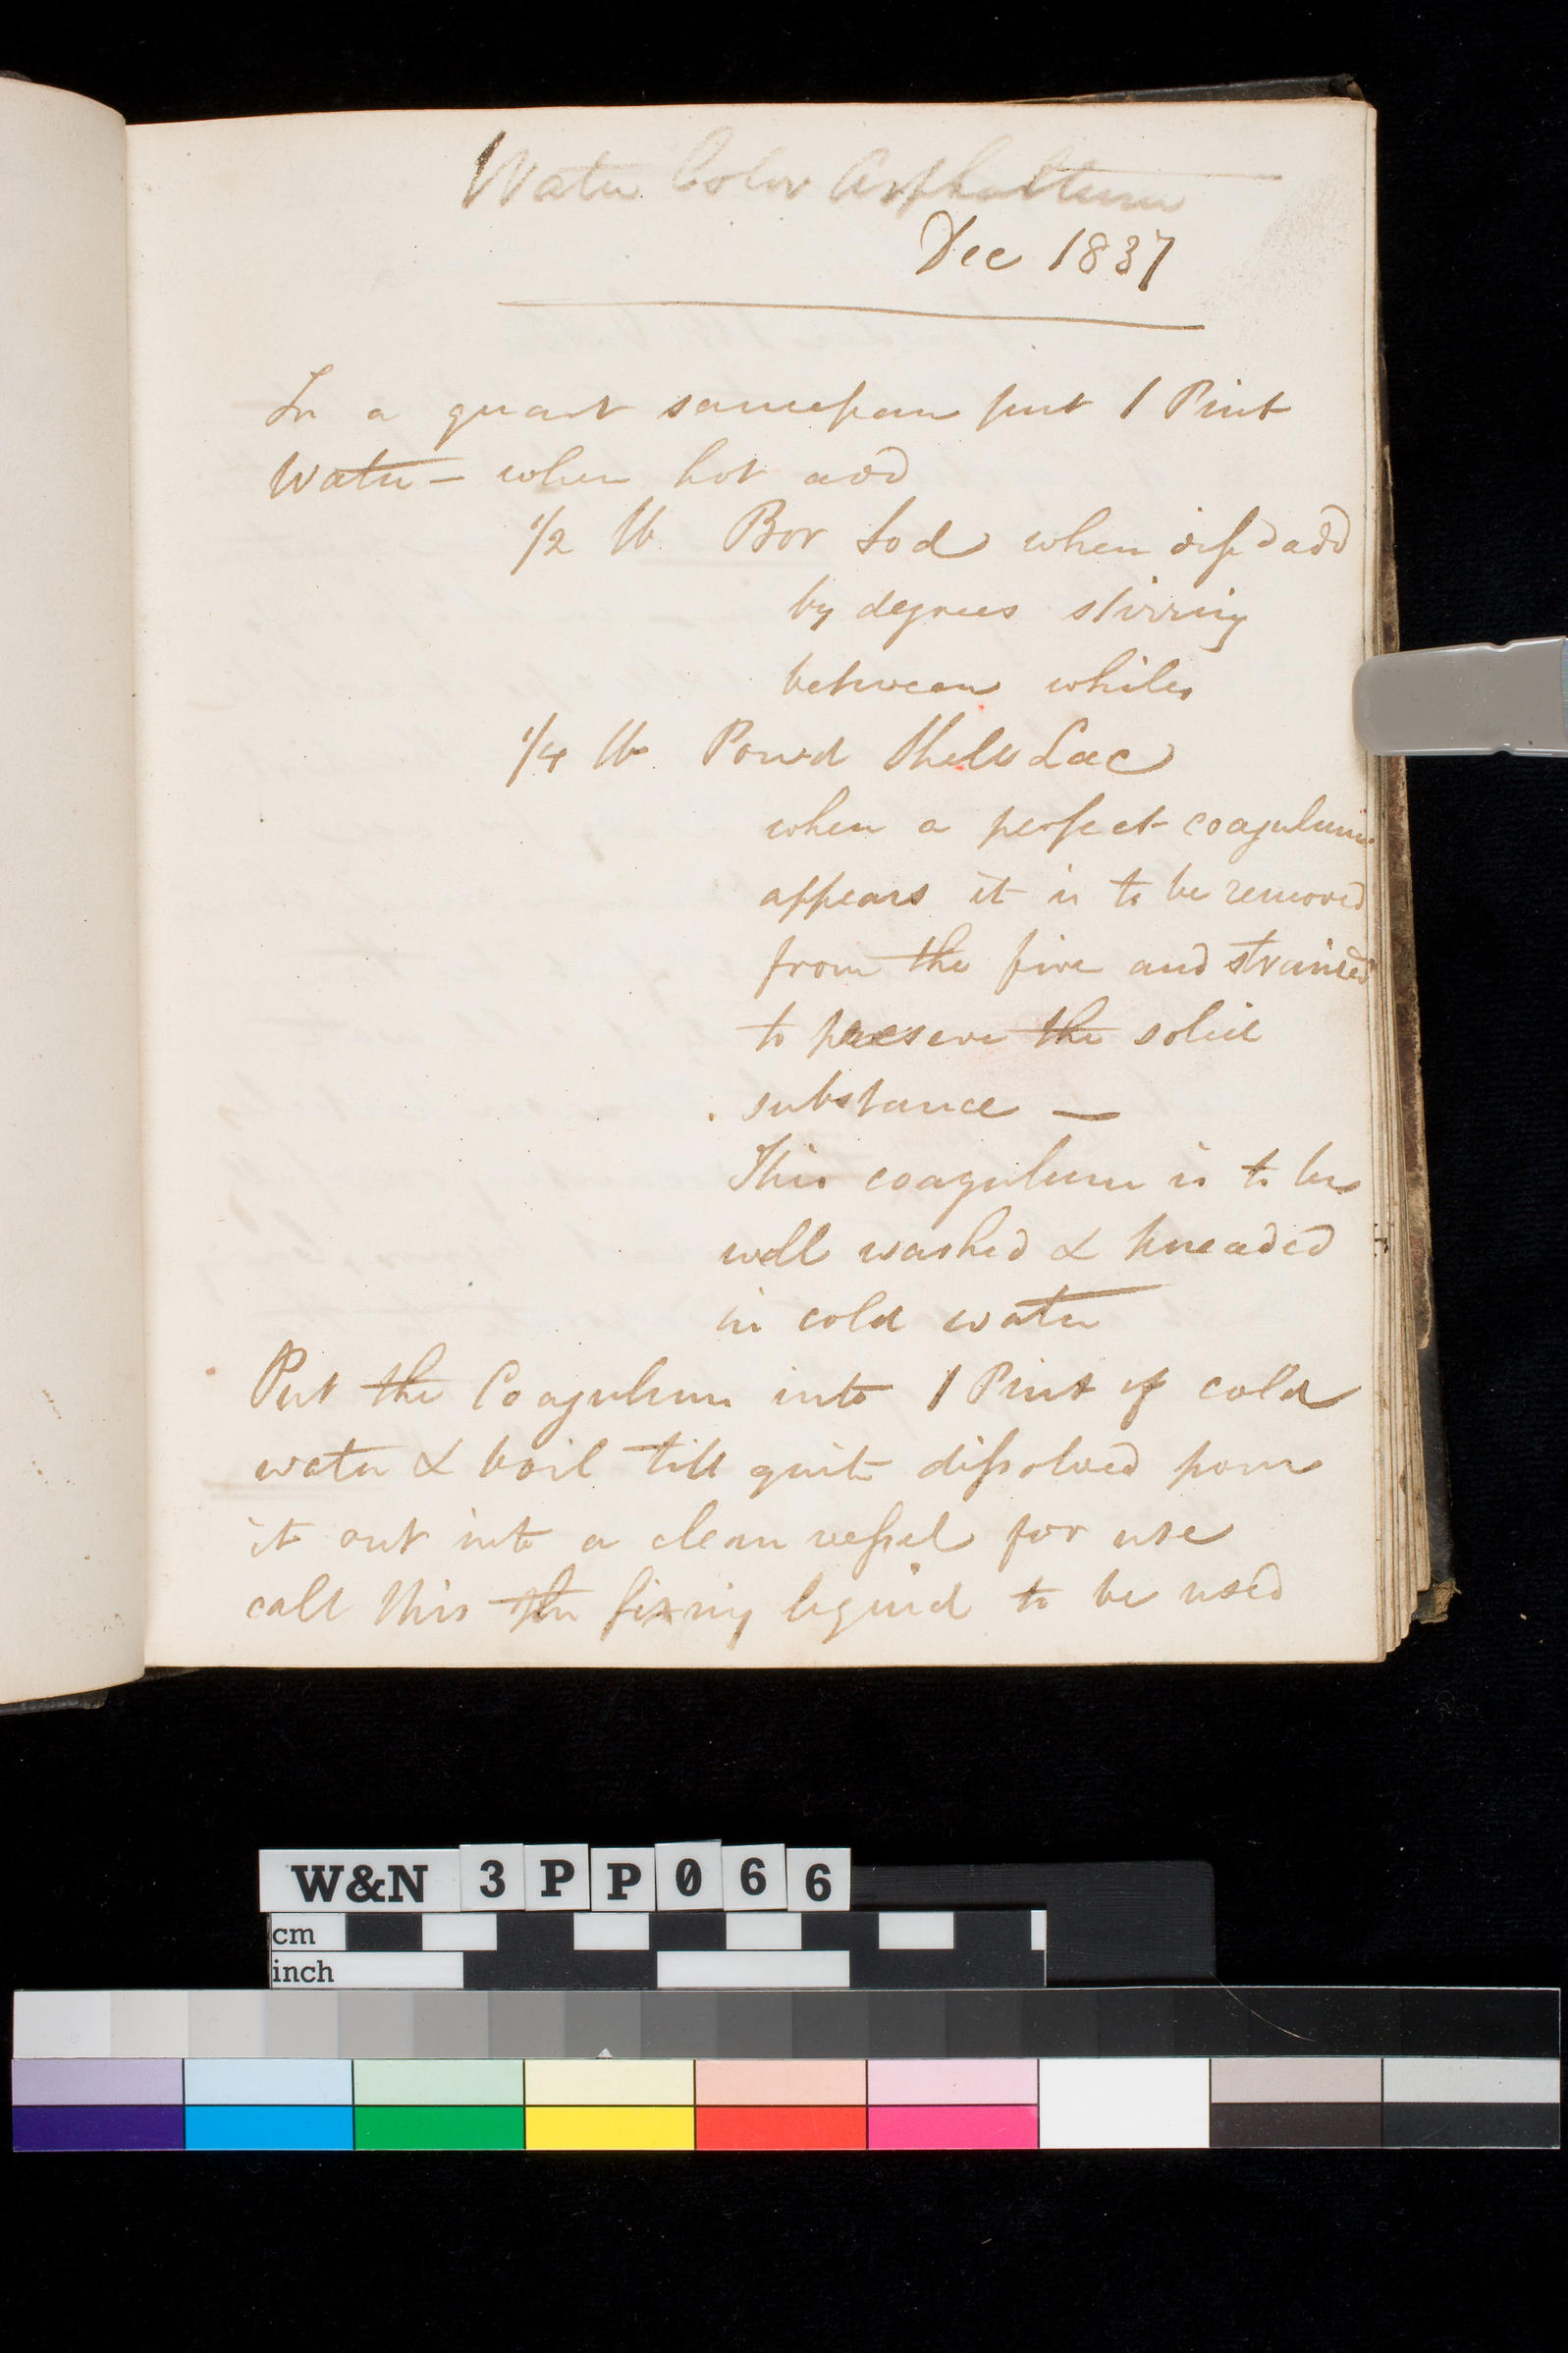 Water Color Asphaltum
Dec 1837
In a quart saucepan put 1 Pint
Water – when hot add
1/2 lb Bor Sod when disd add
by degrees stirring
between whiles
1/4 lb Powd Shell Lac
when a perfect coagulum
appears it is to be removed
from the fire and strained
to preserve the solid
substance —
This coagulum is to be
well washed & kneaded
in cold water
Put the Coagulum into 1 Pint of cold
water & boil till quite dissolved pour
it out into a clean vessel for use
call this the fixing liquid to be used
W&N 3PP066
cm
inch